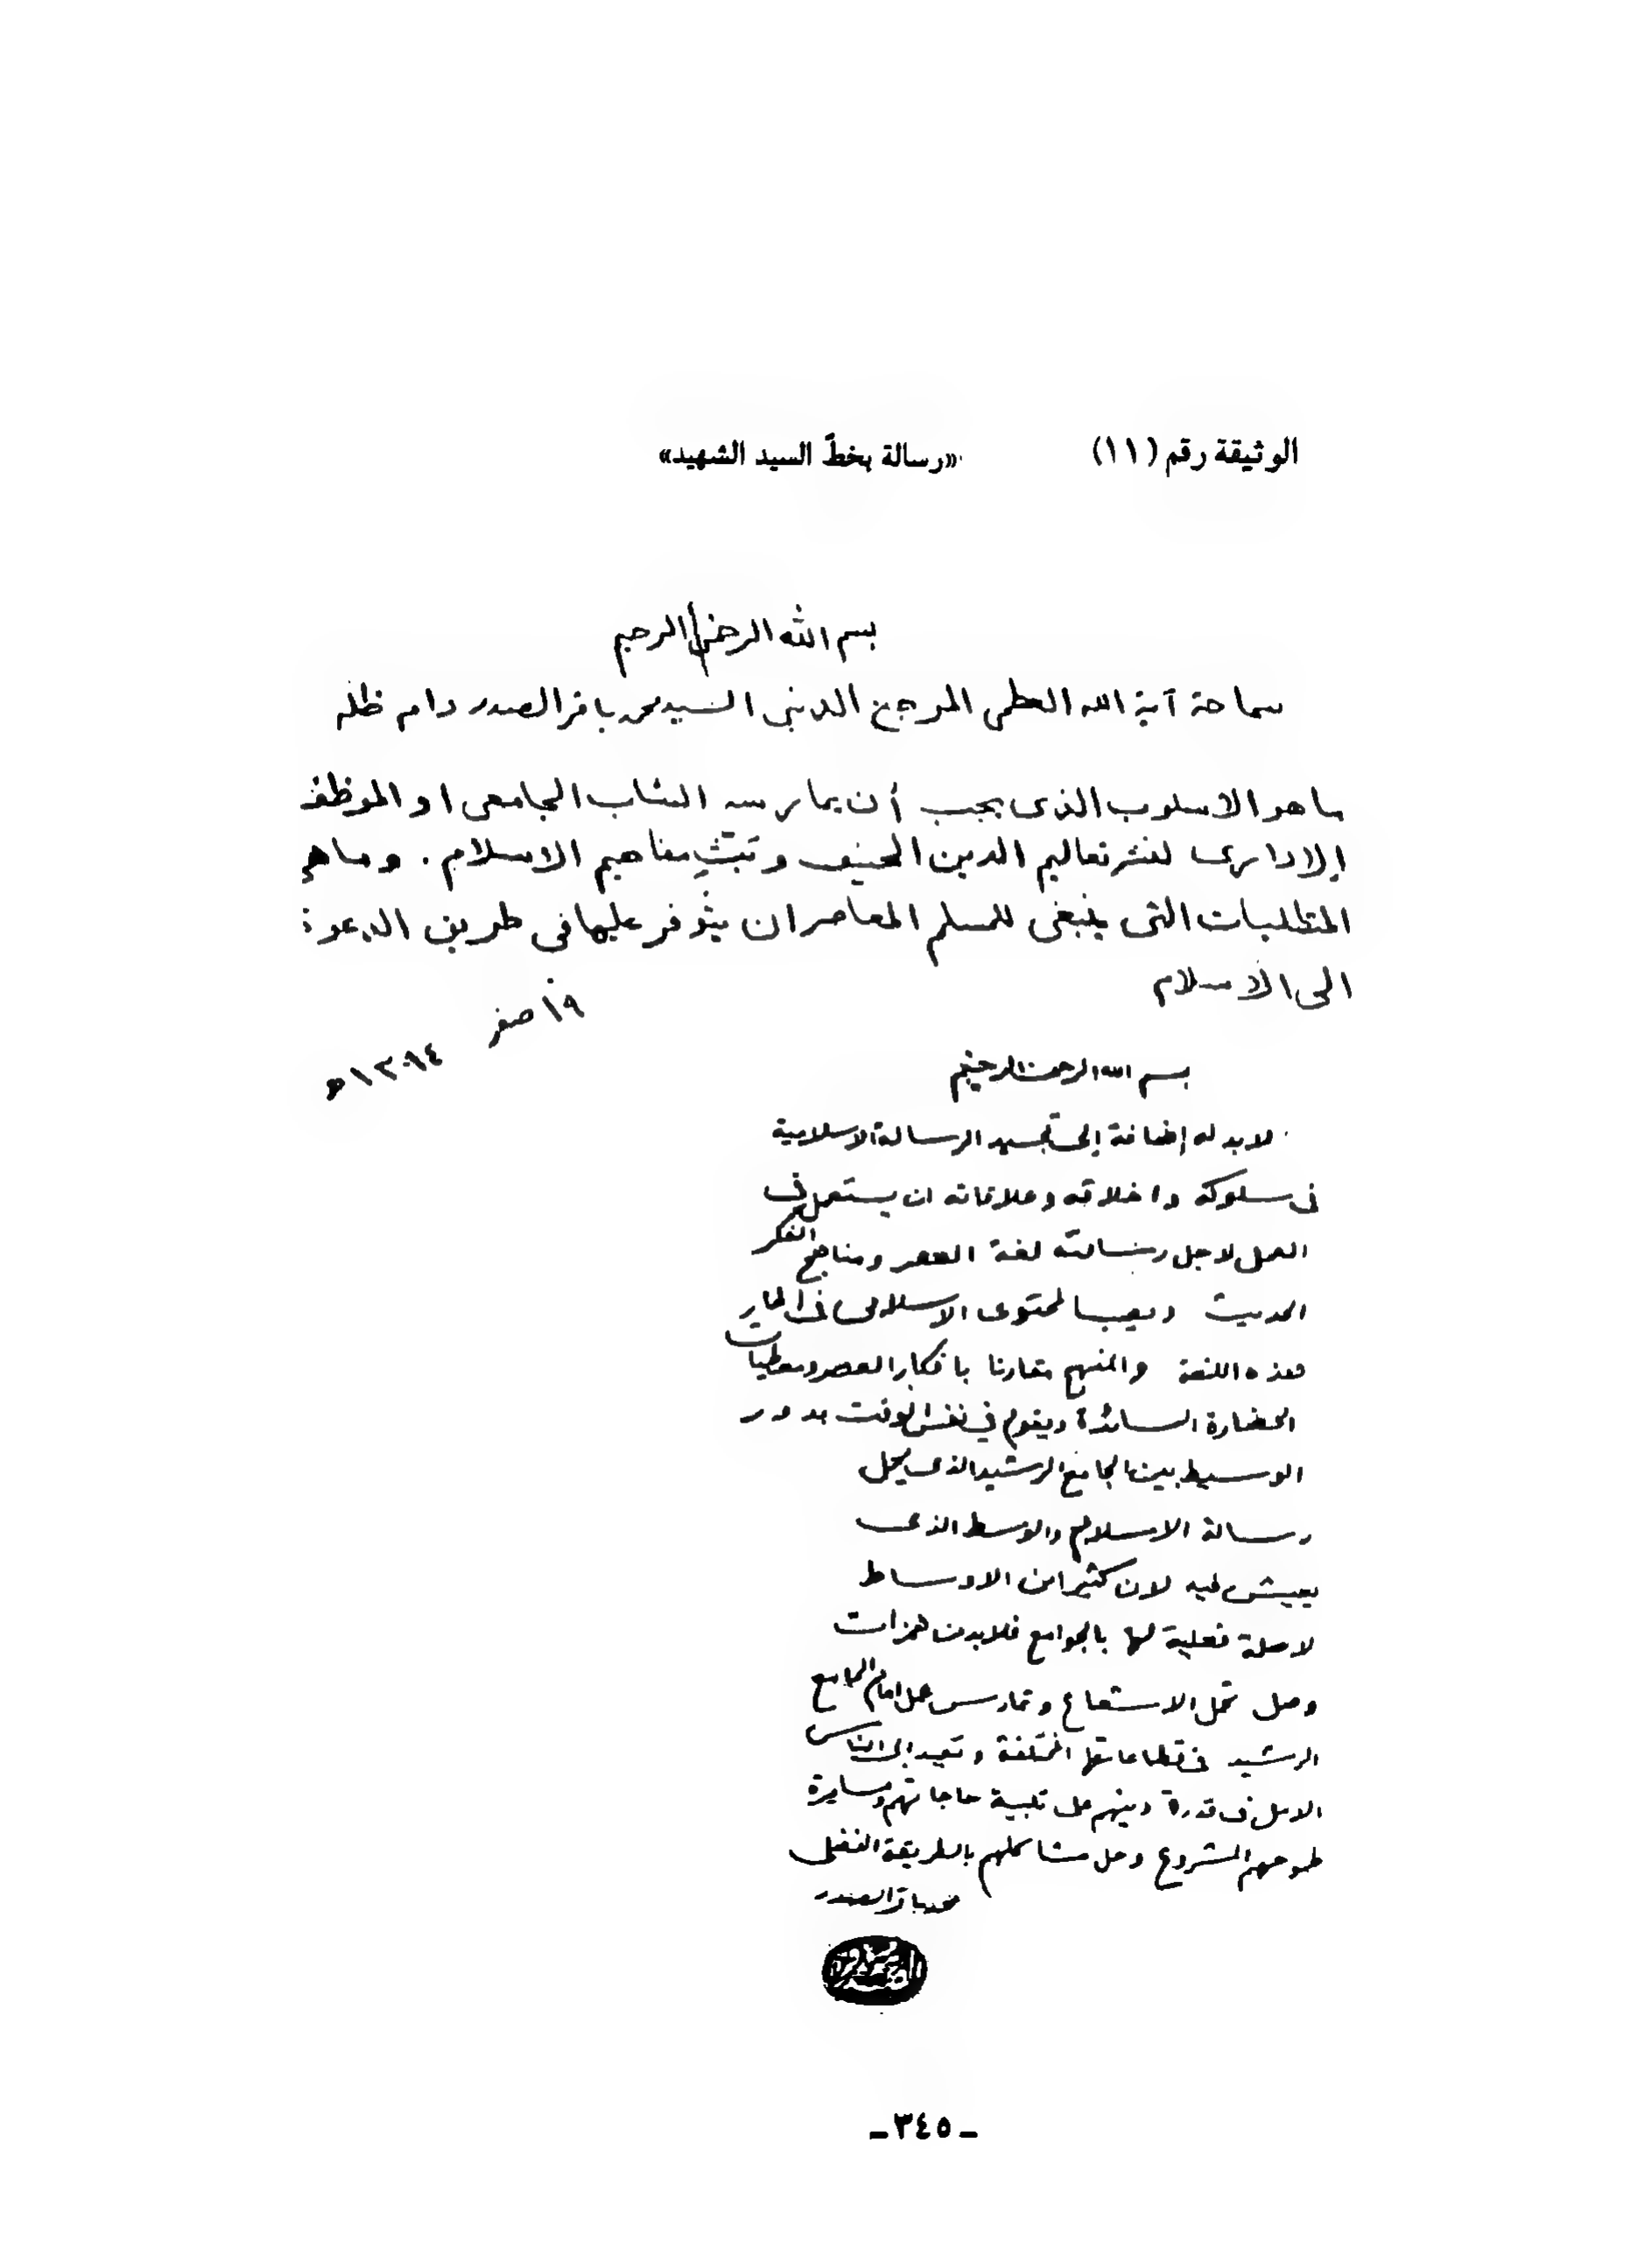 الوثيقة رقم (١١) «رسالة بخطّ السيد الشهيد»
بسم الله الرحمن الرحيم
سماحة آية الله العظمى المرجع الديني السيد محمد باقر الصدر دام ظله
ما هو الاسلوب الذي يجب أن يمارسه الشاب الجامعي او الموظف
الاداري لنشر تعاليم الدين الحنيف وتبث مفاهيم الاسلام . وما هي
المتطلبات التي ينبغي للمسلم المعاصر ان يتوفر عليها في طريق الدعوة
الى الاسلام
١٩ صفر
١٣٩٤ هـ
بسم الله الرحمن الرحيم
لابد له إضافة إلى تجسيد الرسالة الاسلامية
في سلوكه واخلاقه وعلاقاته ان يستعمل في
العمل لاجل رسالته لغة العصر ومناهج الفكر
الحديث ويصب المحتوى الاسلامي في اطار
هذه اللغة والمنهج مقارنا بافكار العصر ومعطيات
الحضارة السائدة ويقوم في نفس الوقت بدور
الوسيط بين الجامع الرشيد الذي يحمل
رسالة الاسلام والوسط الذي
يعيش فيه لان كثيرا من الاوساط
لا صلة فعلية لها بالجوامع فلابد من همزات
وصل تحمل الاشعاع وتمارس عمل امام الجامع
الرشيد في قطاعاتها المختلفة وتعيد إلى الناس
الامل في قدرة دينهم على تلبية حاجاتهم ومسايرة
طموحهم المشروع وحل مشاكلهم بالطريقة الفضلى
محمد باقر الصدر
ـ ٣٤٥ ـ